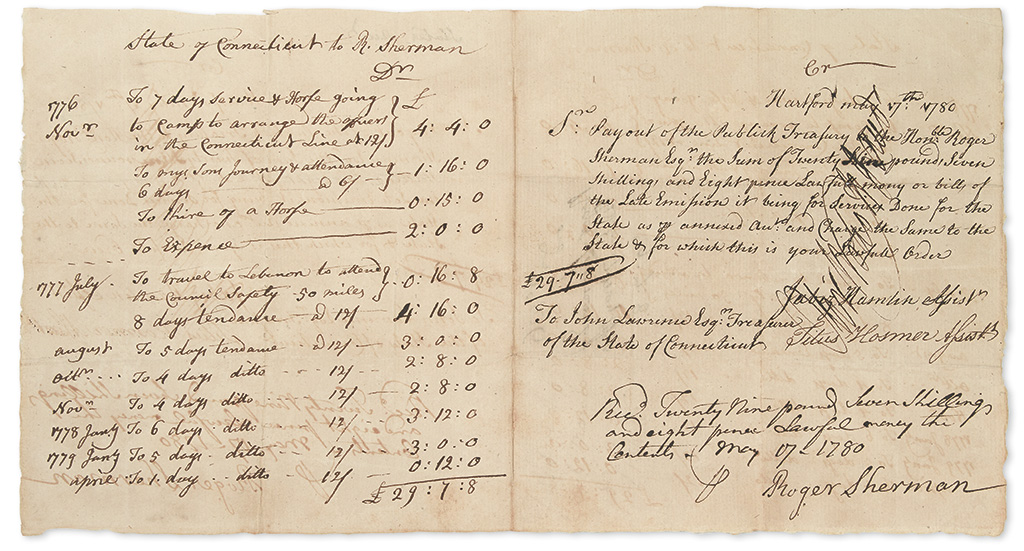 State of Connecticut to R. Sherman
Dr
1776 To 7 days service & Horse going
Novr to Camp to arrange the officers
in the Connecticut Line at 12/ £ 4 : 4 : 0
To my Sons Journey & attendance
6 days a 6/ 1 : 16 : 0
To Hire of a Horse 0 : 15 : 0
To Expence 2 : 0 : 0
1777 July To travel to Lebanon to attend
the Council Safety 50 miles 0 : 16 : 8
8 days tendance a 12/ 4 : 16 : 0
august To 5 days tendance a 12/ 3 : 0 : 0
To 4 days ditto 12/ 2 : 8 : 0
Novr To 4 days ditto 12/ 2 : 8 : 0
1778 Jany To 6 days ditto 12/ 3 : 12 : 0
1779 Jany To 5 days ditto 12/ 3 : 0 : 0
april To 1 day ditto 12/ 0 : 12 : 0
£ 29 : 7 : 8
Cr
Hartford may 17th 1780
Sr Pay out of the Publick Treasury to the Honble Roger
Sherman Esqr the Sum of Twenty Nine pound, Seven
Shilling, and Eight pence Lawfull mony or bills of
the Late Emission it being for Services Done for the
State as pr annexed and Charge the Same to the
State & for which this is your Lawfull Order
£29-7-8
Jabez Hamlin Assistt
To John Lawrence Esqr Treasurer
of the State of Connecticut
Titus Hosmer Assistt
Recd Twenty Nine pound, Seven Shillings
and eight pence Lawful money the
Contents May 17 1780
Roger Sherman